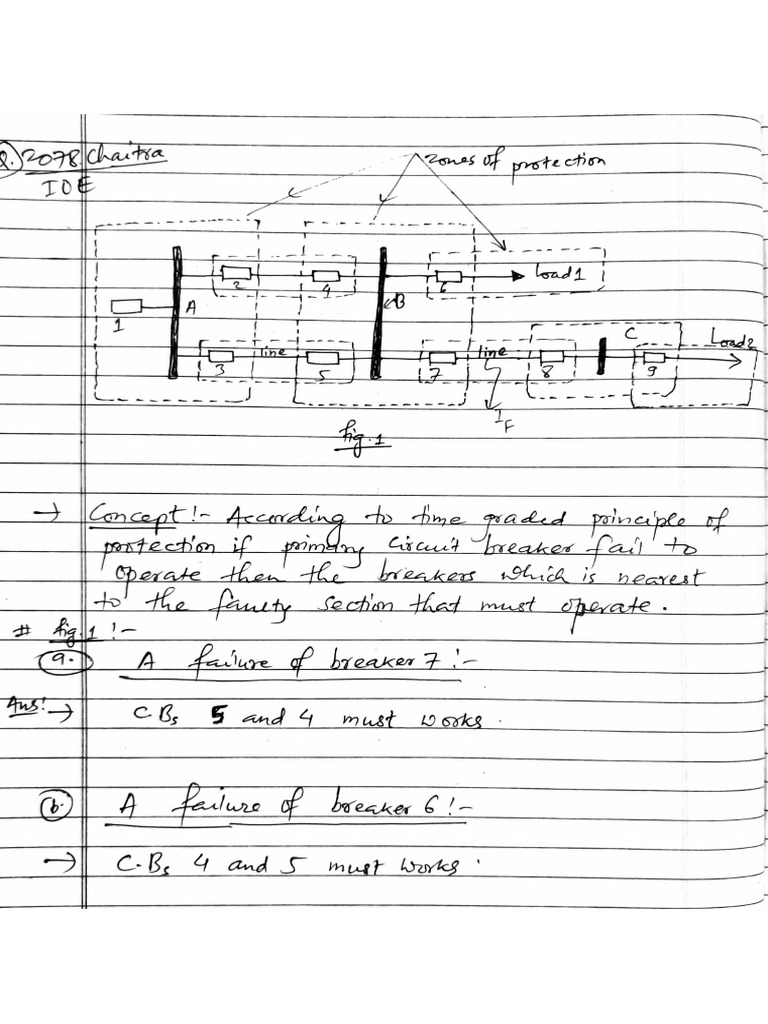 Q. 2078 Chaitra
IOE
zones of protection
2
4
6
Load1
1
A
B
3
line
5
7
line
8
C
9
Load2
IF
fig.1
→ Concept:- According to time graded principle of
protection if primary circuit breaker fail to
operate then the breakers which is nearest
to the faulty section that must operate.
# fig.1:-
a. A failure of breaker 7:-
Ans:→ C.Bs 5 and 4 must works.
b. A failure of breaker 6:-
→ C.Bs 4 and 5 must works.